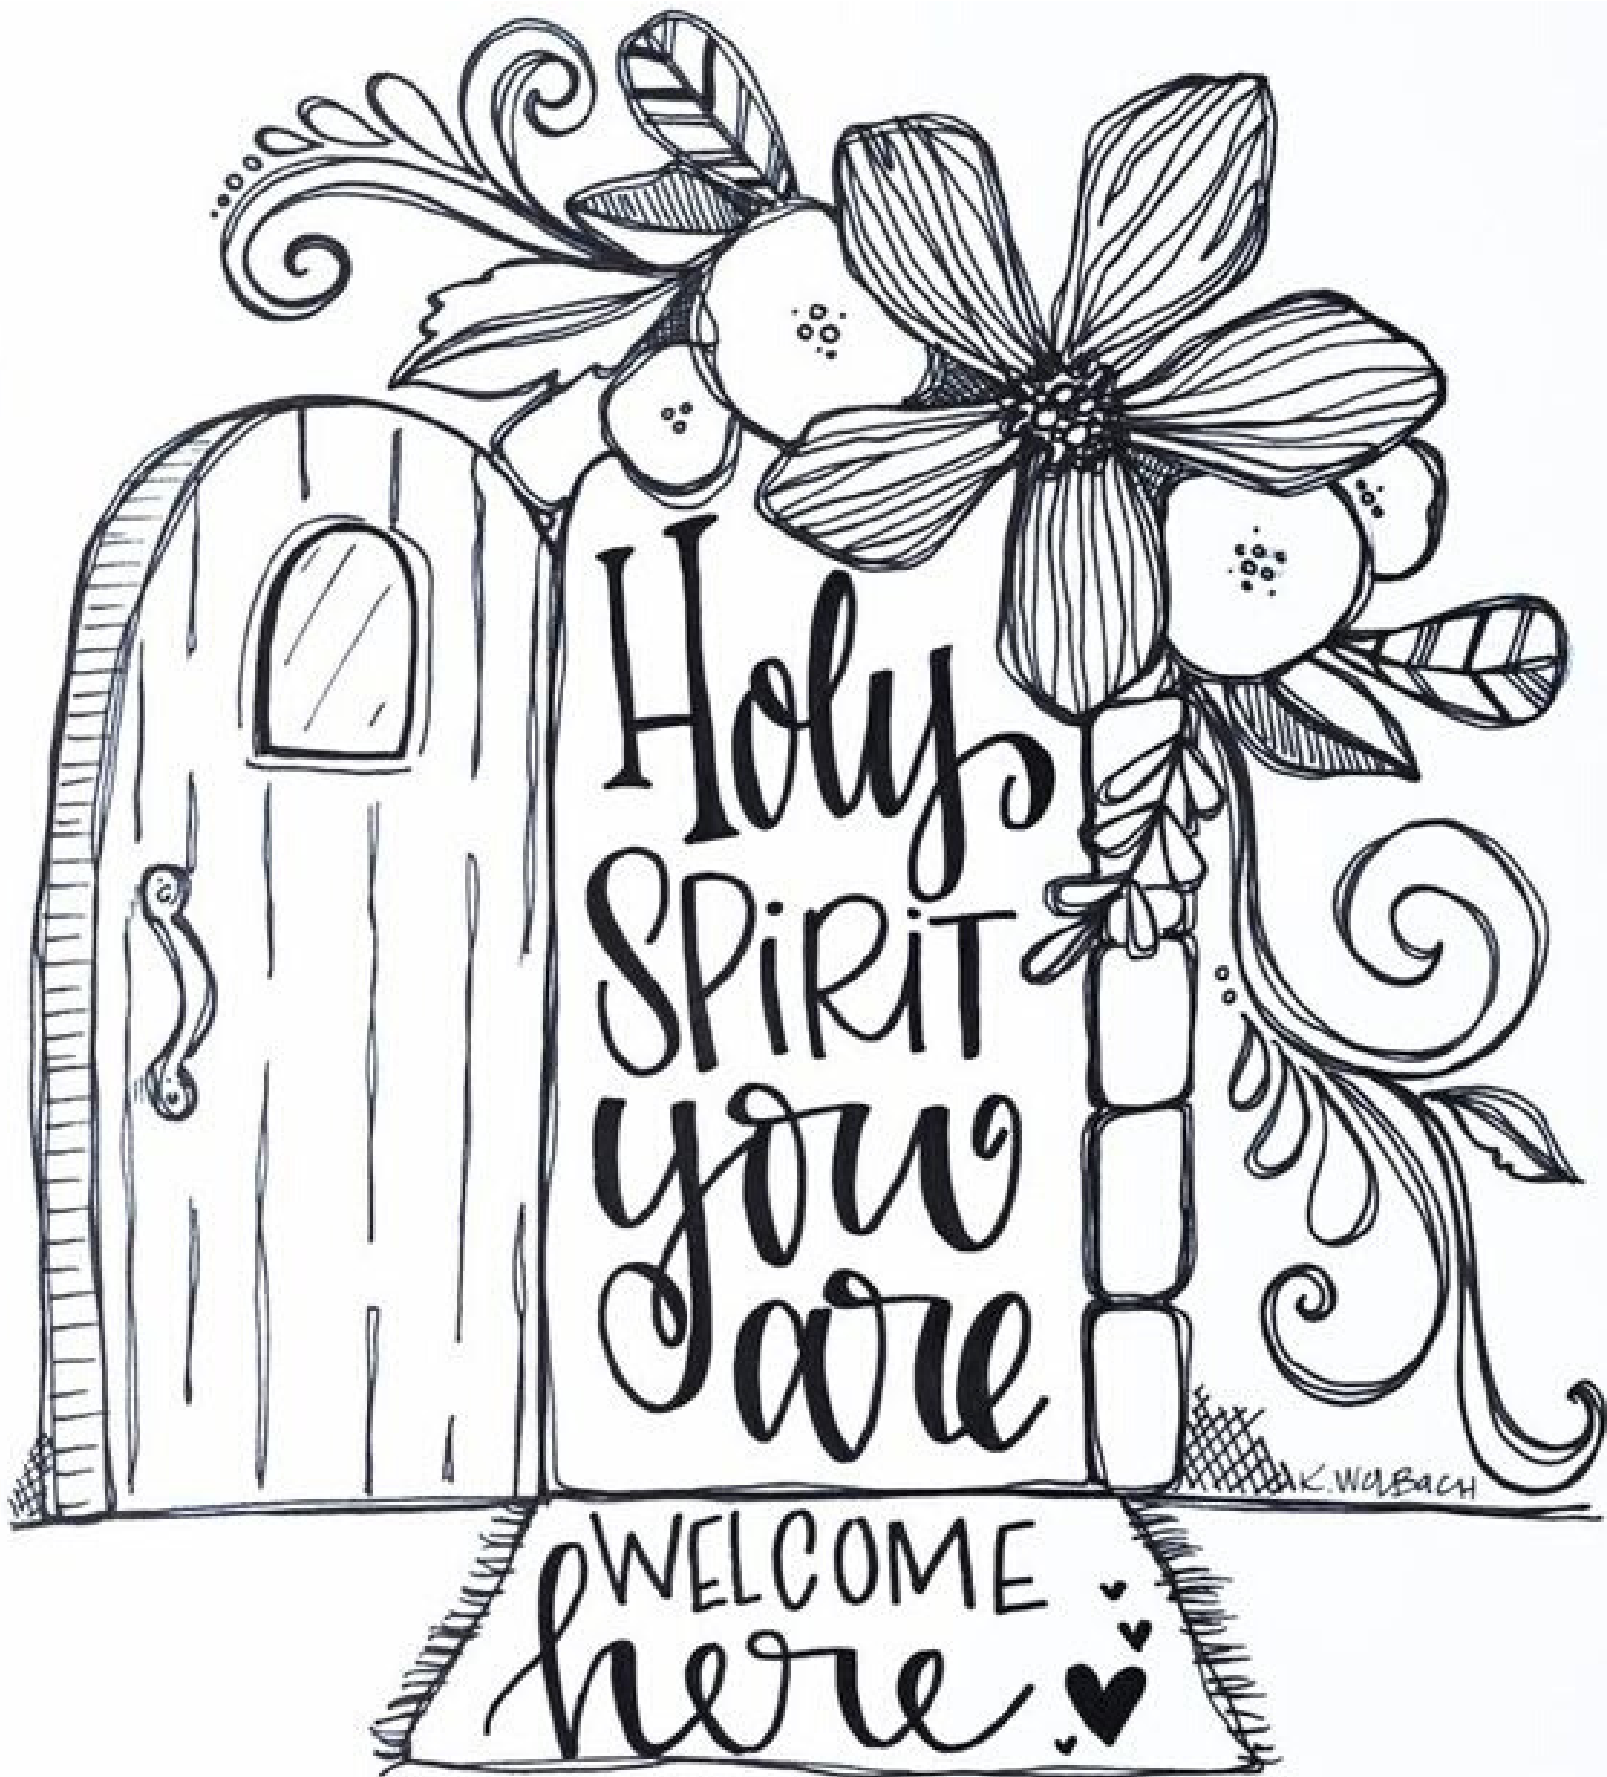 Holy
SPiRiT
you
are
K. WOLBACH
WELCOME
here